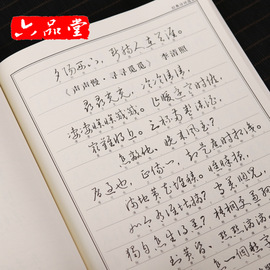 六品堂
夕阳西下，断肠人在天涯。
《声声慢·寻寻觅觅》李清照
寻寻觅觅，冷冷清清，
凄凄惨惨戚戚。乍暖还寒时候，
最难将息。三杯两盏淡酒，
怎敌他、晚来风急？
雁过也，正伤心，却是旧时相识。
满地黄花堆积。憔悴损，
如今有谁堪摘？守着窗儿，
独自怎生得黑？梧桐更兼细
到黄昏、点点滴滴
怎一个愁字